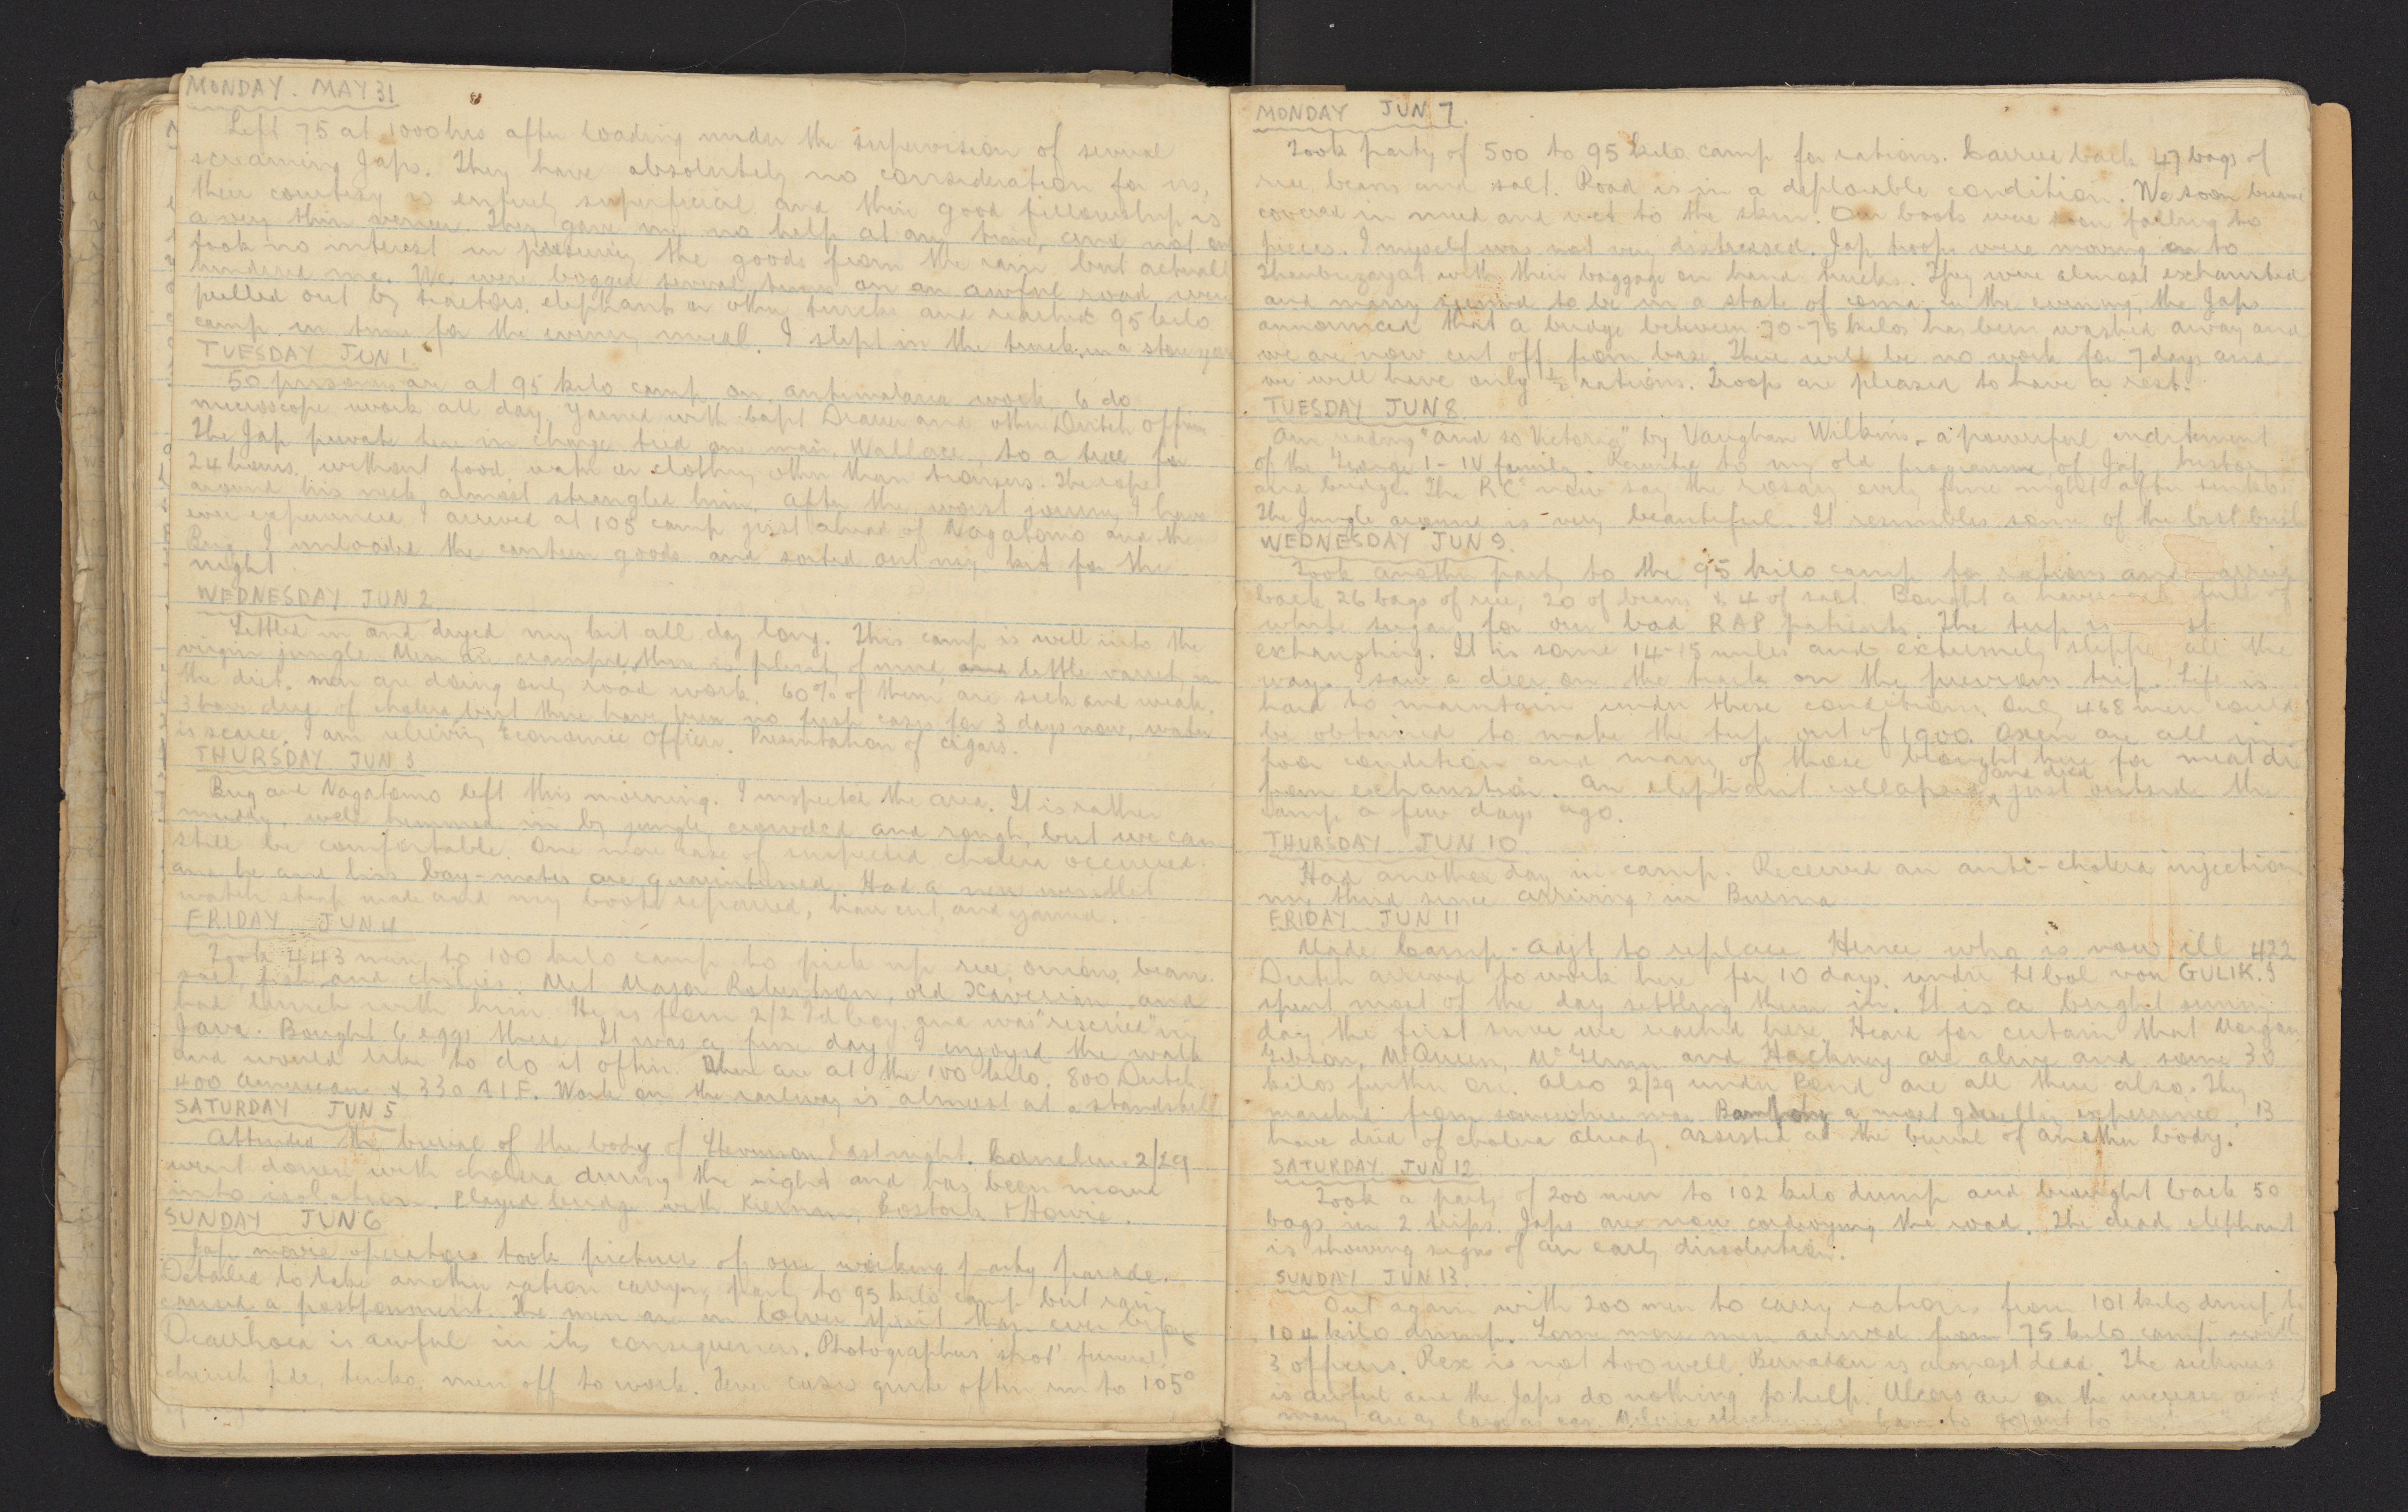 MONDAY. MAY 31
Left 75 at 1000 hrs after loading under the supervision of several
screaming Japs. They have absolutely no consideration for us,
their courtesy is entirely superficial and their good fellowship is
a very thin veneer. They gave me no help at any time, and not only
took no interest in preserving the goods from the rain but actually
hindered me. We were bogged several times on an awful road were
pulled out by tractors, elephants or other trucks and reached 95 kilo
camp in time for the evening meal. I slept in the truck, in a
TUESDAY JUN 1.
50 prisoners are at 95 kilo camp on antimalaria work, 6 do
microscope work all day. Yarned with Capt and other Dutch officers
The Jap private here in charge tied one man, Wallace, to a tree for
24 hours, without food, water or clothing other than trousers. The rope
around his neck almost strangled him. After the worst journey I have
ever experienced I arrived at 105 camp just ahead of Nagatomo and the
Brig. I unloaded the canteen goods and sorted out my kit for the
night
WEDNESDAY JUN 2.
Settled in and dryed my kit all day long. This camp is well into the
virgin jungle. Men are cramped, there is plenty of mud, little variety in
the diet. Men are doing only road work. 60% of them are sick and weak.
3 have died of cholera but there have been no fresh cases for 3 days now, water
is scarce. I am relieving Economic Officer. Presentation of cigars.
THURSDAY JUN 3
Brig and Nagatomo left this morning. I inspected the area. It is rather
muddy, well hemmed in by jungle, crowded and rough, but we can
still be comfortable. One more case of suspected cholera occurred
and he and his bay-mates are quarintined. Had a new wristlet
watch strap made and my boots repaired, hair cut, and yarned.
FRIDAY JUN 4
Took 443 men to 100 kilo camp to pick up rice, onions, beans
salt, fish and chilies. Met Major Robertson, old Xaverian and
had lunch with him. He is from 2/2 Fd Coy. and was "rescued" in
Java. Bought 6 eggs there. It was a fine day I enjoyed the walk
and would like to do it often. There are at the 100 kilo, 800 Dutch,
400 Americans & 330 A I F. Work on the railway is almost at a standstill
SATURDAY JUN 5
Attended the burial of the body of last night. 2/29
went down with cholera during the night and has been moved
into isolation. Played bridge with Kiernan, Bostock & Howie.
SUNDAY JUN 6
Jap movie operators took pictures of our working party parade.
Detailed to take another ration carrying party to 95 kilo camp but rain
caused a postponement. The men are in lower spirit than ever before
Diarrhoea is awful in its consequences. Photographers 'shot' funeral,
church pde, tenko, men off to work. Fever cases quite often run to 105°
MONDAY JUN 7.
Took party of 500 to 95 kilo camp for rations. Carried back 47 bags of
rice, beans and salt. Road is in a deplorable condition. We soon became
covered in mud and wet to the skin. Our boots were soon falling to
pieces. I myself was not very distressed. Jap troops were moving on to
Thanbuzayat with their baggage on hand trucks. They were almost exhausted
and many seemed to be in a state of coma. In the evening, the Japs
announced that a bridge between 70-75 kilos has been washed away and
we are now cut off from base. There will be no work for 7 days and
we will have only ½ rations. Troops are pleased to have a rest.
TUESDAY JUN 8.
Am reading "And so Victoria" by Vaughan Wilkins, - a powerful inditement
of the George I - IV family. Reverted to my old programme of Jap, history
and bridge. The R.Cs now say the rosary every fine night after tenko.
The Jungle around is very beautiful. It resembles some of the best bush
WEDNESDAY JUN 9.
Took another party to the 95 kilo camp for rations and
back 26 bags of rice, 20 of beans & 4 of salt. Bought a haversack full of
white sugar for our bad RAP patients. The trip is
exhausting. It is some 14-15 miles and extremely slippy all the
way. I saw a deer on the track on the previous trip. Life is
hard to maintain under these conditions. Only 468 men could
be obtained to make the trip out of 1900. Oxen are all in
poor condition and many of those brought here for meat die
from exhaustion. An elephant collapsed and died just outside the
camp a few days ago.
THURSDAY JUN 10.
Had another day in camp. Received an anti-cholera injection
my third since arriving in Burma
FRIDAY JUN 11
Made Camp-Adjt to replace Hence who is now ill 422
Dutch arrived to work here for 10 days, under Lt Col von GULIK. I
spent most of the day settling them in. It is a bright sunny
day the first since we reached here. Heard for certain that Morgan,
Gibson, McQueen, and Hackney are alive and some 30
kilos further on. Also 2/29 under Pond are all there also. They
marched from somewhere near Bampong a most gruelling experience 13
have died of cholera already. Assisted at the burial of another body.
SATURDAY JUN 12
Took a party of 200 men to 102 kilo dump and brought back 50
bags in 2 trips. Japs are now corduroying the road. The dead elephant
is showing signs of an early dissolution.
SUNDAY JUN 13.
Out again with 200 men to carry rations from 101 kilo dump to
104 kilo dump. Some more men arrived from 75 kilo camp with
3 officers. Rex is not too well. is almost dead. The sickness
is awful and the Japs do nothing to help. Ulcers are on the increase and
many are as large as an egg.